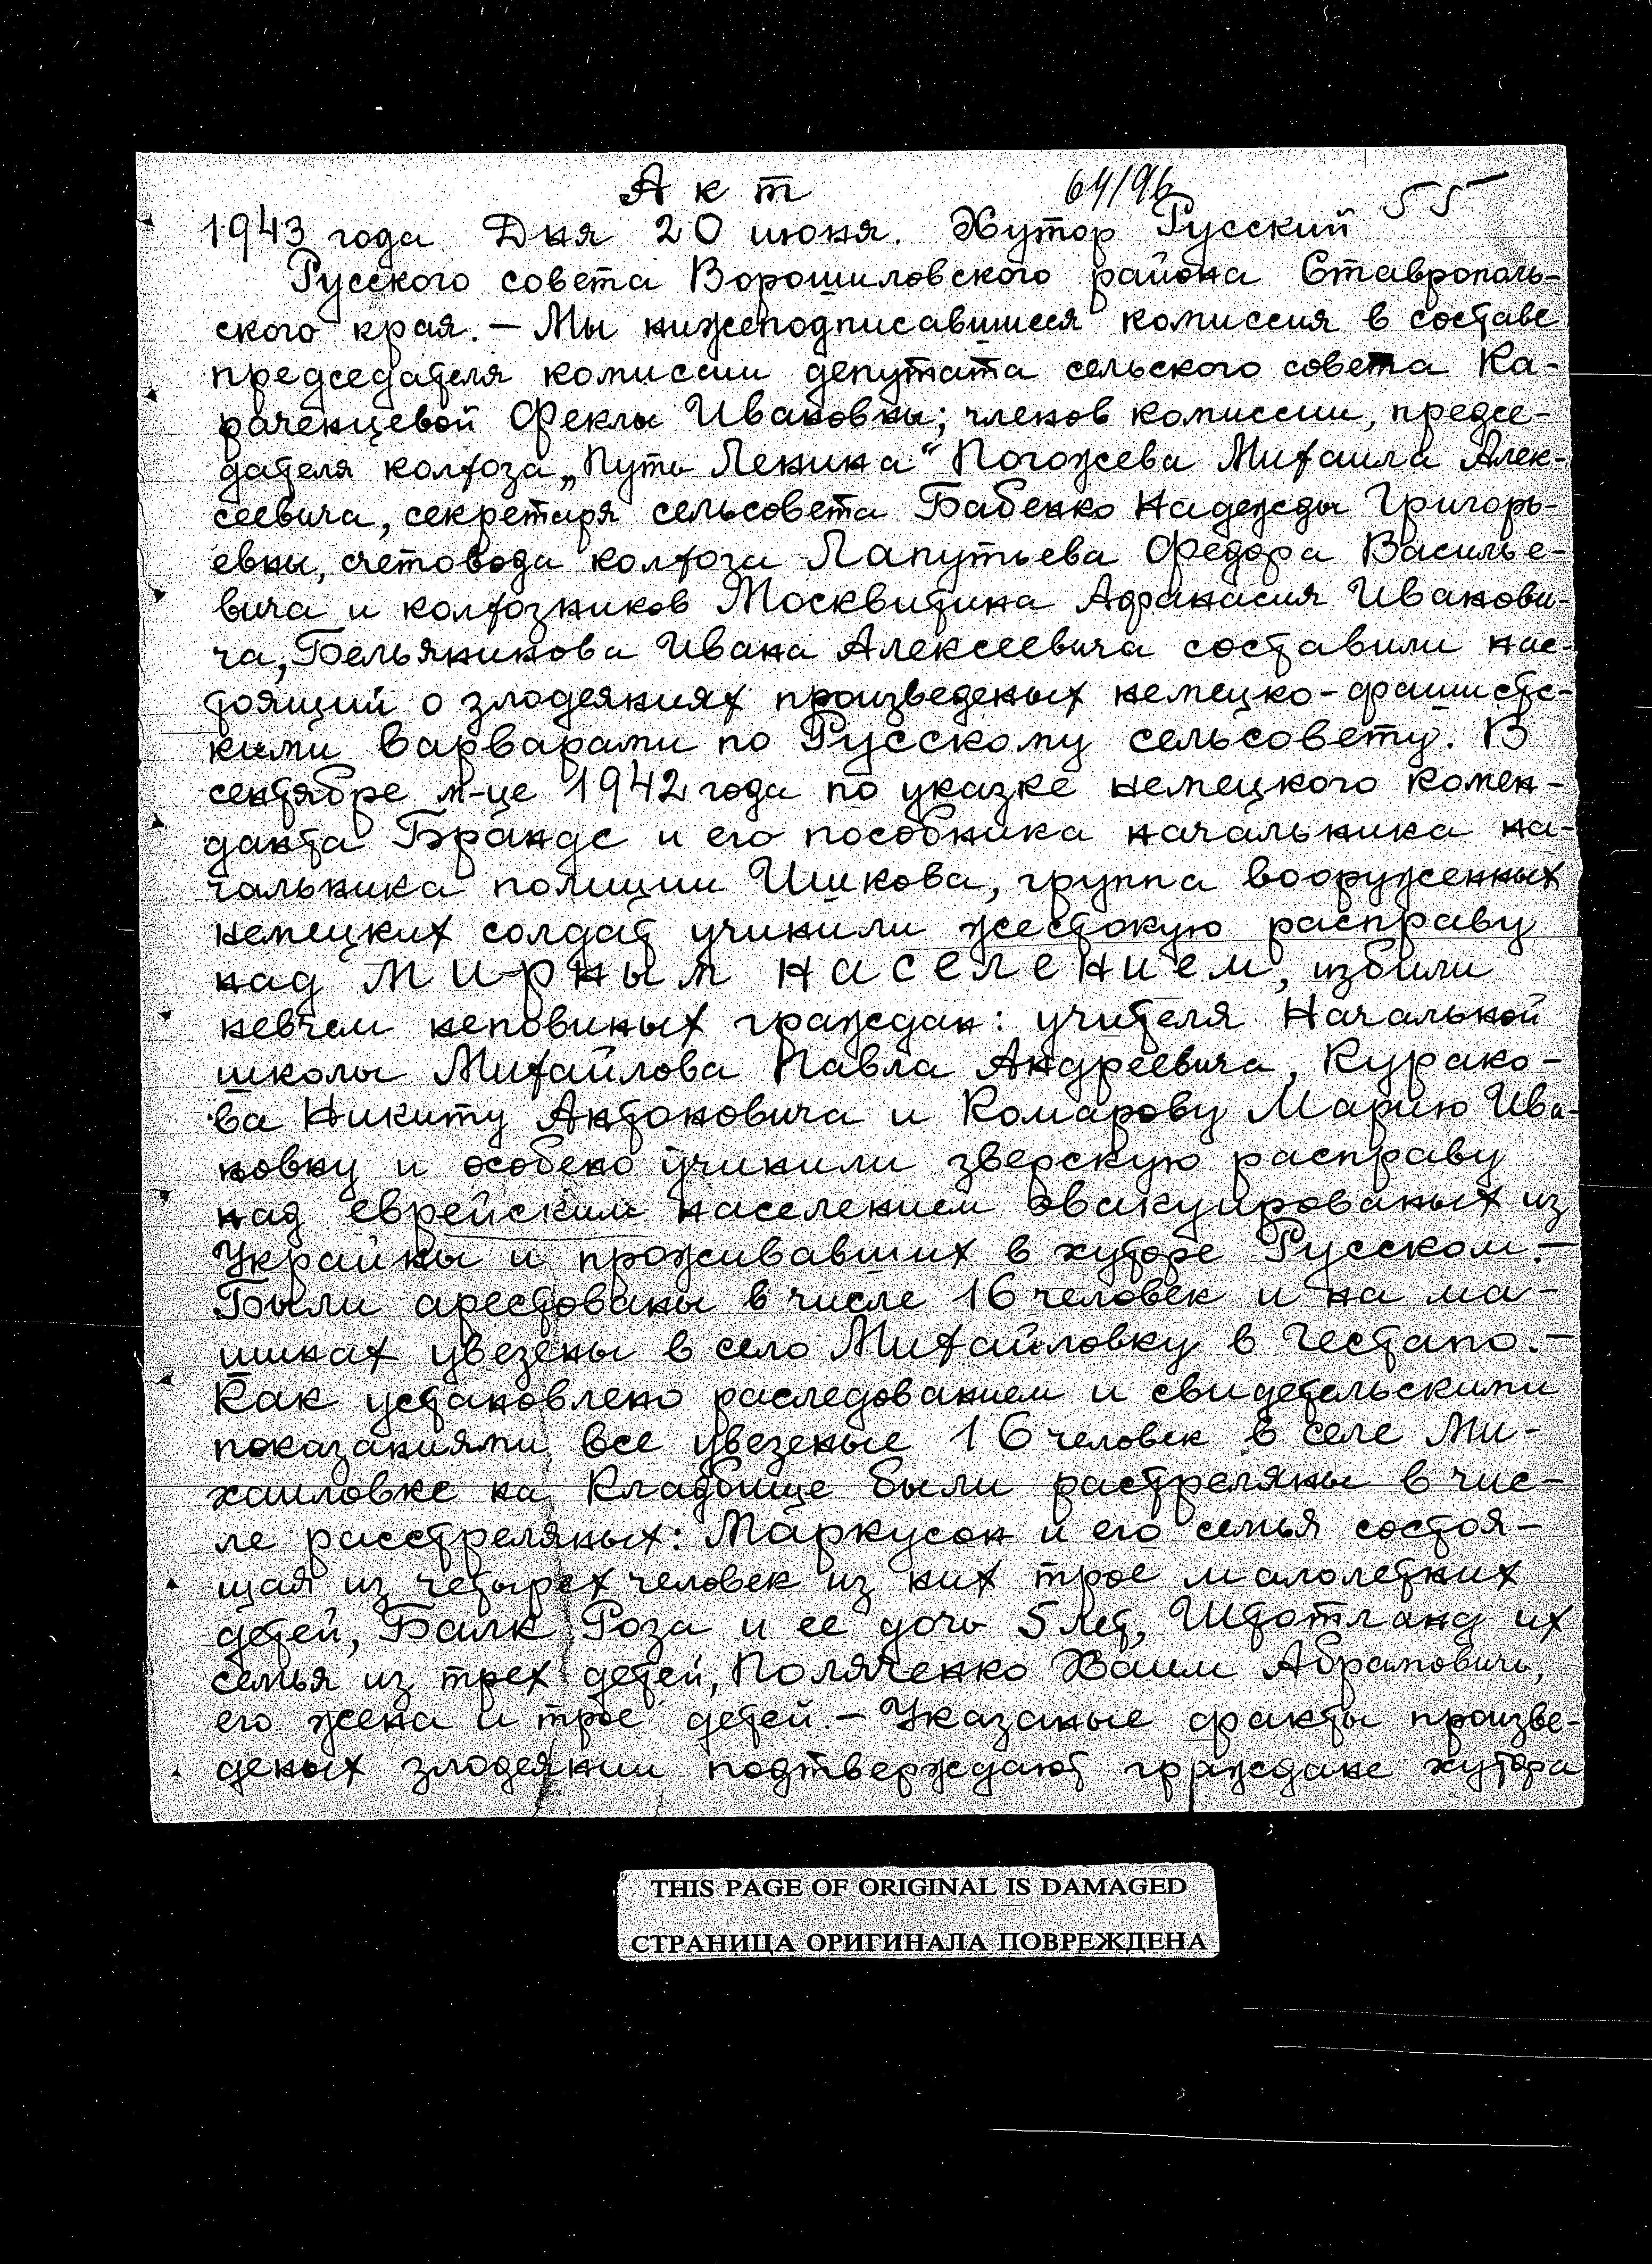 Акт 64/96 55
1943 года Дня 20 июня. Хутор Русский
Русского совета Ворошиловского района Ставрополь-
ского края. — Мы нижеподписавшиеся комиссия в составе
председателя комиссии депутата сельского совета Ка-
раченцевой Феклы Ивановны; членов комиссии, предсе-
дателя колхоза „Путь Ленина“ Погожева Михаила Алек-
сеевича, секретаря сельсовета Бабенко Надежды Григорь-
евны, счетовода колхоза Лапутьева Федора Василье-
вича и колхозников Москвитина Афанасия Иванови-
ча, Бельяникова Ивана Алексеевича составили нас-
тоящий о злодеяниях произведеных немецко-фашистс-
кими варварами по Русскому сельсовету. В
сентябре м-це 1942 года по указке немецкого комен-
данта Брандс и его пособника начальника на-
чальника полиции Шикова, группа вооруженных
немецких солдат учинили жестокую расправу
над мирным населением, избили
невчем неповиных граждан: учителя Начальной
школы Михайлова Павла Андреевича, Курако-
ва Никиту Антоновича и Комарову Марию Ива-
новну и особено учинили зверскую расправу
над еврейским населением эвакуированых из
Украины и проживавших в хуторе Русском. —
Были арестованы в числе 16 человек и на ма-
шинах увезены в село Михайловку в Гестапо. —
Как установлено раследованием и свидетельскими
показаниями все увезеные 16 человек в селе Ми-
хаиловке на Кладбище были растреляны в чис-
ле расстреляных: Маркусон и его семья состоя-
щая из четырех человек из них трое малолетних
детей, Балк Роза и ее дочь 5 лет, Штотланд их
семья из трех детей, Поляченко Хаим Абрамович,
его жена и трое детей. — Указаные факты произве-
деных злодеянии подтверждают граждане хутора
THIS PAGE OF ORIGINAL IS DAMAGED
СТРАНИЦА ОРИГИНАЛА ПОВРЕЖДЕНА